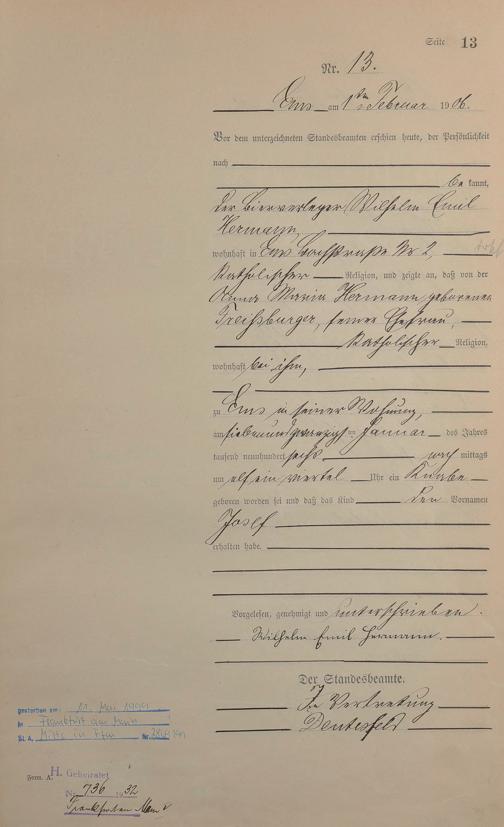 Seite 13
Nr. 13.
Ems am 1ten Februar 1906.
Vor dem unterzeichneten Standesbeamten erschien heute, der Persönlichkeit
nach
be kannt,
der Bierverleger Wilhelm Emil
Hermann,
wohnhaft in Ems Bachstraße Nr 2,
katholischer Religion, und zeigte an, daß von der
Anna Maria Hermann geborenen
seiner Ehefrau,
katholischer Religion,
wohnhaft bei ihm,
zu Ems in seiner Wohnung,
am siebenundzwanzigsten Januar des Jahres
tausend neunhundert sechs nach mittags
um elf ein viertel Uhr ein Knabe
geboren worden sei und daß das Kind den Vornamen
Josef
erhalten habe.
Vorgelesen, genehmigt und unterschrieben.
Wilhelm Emil Hermann.
Der Standesbeamte.
In Vertretung
gestorben am: 11. Mai
in Frankfurt am Main
St. A. Mitte in Ffm Nr.
Form. A. H. Geheiratet
Nr. 736 1932
Frankfurt am Main V